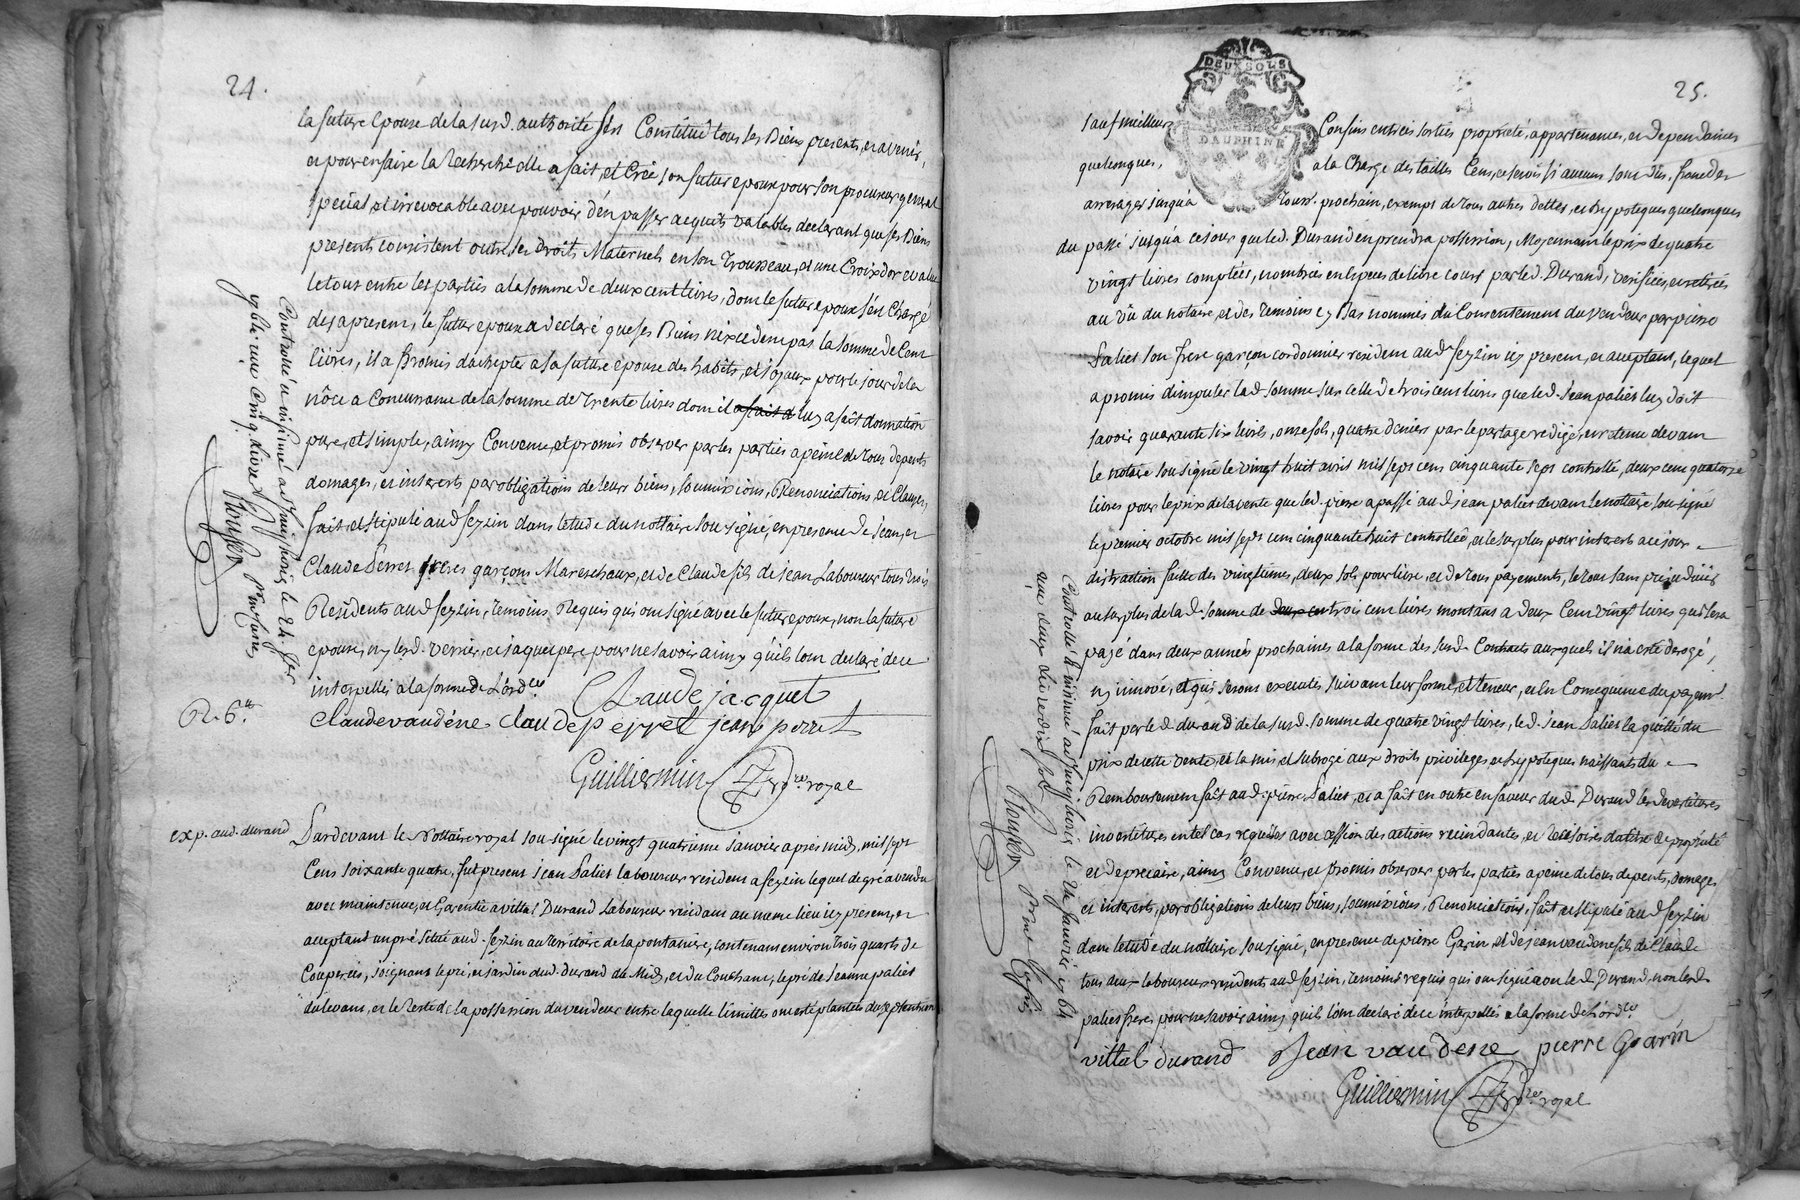 24.
la future Epouse de la susd. authorité s'est Constitué tous ses Biens presents, et avenir,
et pour en faire la Recherche elle a fait, et Créé son futur epoux pour son procureur general
special et irrevocable avec pouvoir d'en passer acquits valables declarant que ses Biens
presents consistent outre ses droits Maternels en son Trousseau, et une Croix d'or evalué
le tout entre les parties a la somme de deux cent livres, dont le futur epoux s'est Chargé
des apresent, le futur epoux a declaré que ses Biens n'excedent pas la somme de Cent
livres, il a promis d'achepter a la future epouse des habits, et joyaux pour le jour de la
nôce a Concurrance de la somme de Trente livres dont il a fait d luy a fait donnation
pure, et simple, ainsy Convenu, et promis observer par les parties a peine de tous depents
domages, et interests par obligations de leurs biens, soumissions, Renonciations et Clauses,
fait, et stipulé aud. seyzin dans l'etude du nottaire sousigné, en presence de jean, et
Claude Perret freres garçons Mareschaux, et de Claude fils de jean Laboureur tous trois
Residents aud. seyzin, temoins Requis qui ont signé avec le futur epoux, non la future
epouse, ny led. vernier, et jaquet pere pour ne savoir ainsy qu'ils l'ont declaré de ce
interpellés a la forme de L'ord.ce
Claude jacquet
R. 6.tt
claude vaudéne claude perret jean perret
Guilliermin n.re royal
Controllé et insinué a
le 24. jer
cinq livres
exp. aud. durand
Pardevant le Nottaire royal sousigné le vingt quatrieme janvier apres midy, mil sept
Cens soixante quatre, fut present jean Paliet laboureur resident a seyzin lequel de gré a vendu
avec maintenue, et Garentie a vittal Durand Laboureur residant au meme lieu icy present, et
acceptant un pré scitué aud. seyzin au territoire de la pontaniere, contenant environ trois quarts de
Couperée, joignant le pré, et jardin dud. durand du Midy, et du Couchant, le pré de jeanne paliet
du levant, et le Reste de la possession du vendeur entre laquelle limittes ont esté plantées du septentrion
25.
DEUX SOLS
DAUPHINE
sauf meilleurs Confins entrées sorties propriété, appartenances, et dependances
quelconques, a la Charge des tailles Cens, et servis si aucuns sont dus, franc des
arrerages jusqu'a Tours. prochain, exempt de tous autres dettes, et hypoteques quelconques
du passé jusqu'a ce jour que led. Durand en prendra possession, Moyennant le prix de quatre
vingt livres comptées, nombrées en Especes de libre cours par led. Durand, verifiées, et retirées
au vû du notaire, et des temoins cy Bas nommés du Consentement du vendeur par pierre
Paliet son frere garçon cordonnier resident aud. seyzin icy present, et acceptant, lequel
a promis d'imputer lad. somme sur celle de trois cent livres que led. jean paliet luy doit
savoir quarante six livres, onze sols, quatre deniers par le partage redigé, et retenu devant
le notaire sousigné le vingt huit avril mil sept cens cinquante sept controllé, deux cens quatorze
livres pour le prix de la vente que led. pierre a passé aud. jean paliet devant le nottaire sousigné
le premier octobre mil sept cent cinquante huit controlleé, et le surplus pour interets a ce jour
distraction faitte des vingtiemes, deux sols pour livre, et de tous payements, le tous sans prejudice
au surplus de lad. somme de deux cen trois cent livres montans a deux Cent vingt livres qui sera
payé dans deux années prochaines a la forme des susd. Contracts auxquels il n'a esté derogé,
ny innové, et qui seront executés suivant leur forme, et teneur, et En Consequence du payemt.
fait par led. durand de la susd. somme de quatre vingt livres, led. jean Paliet l'a quitté du
prix de cette vente, et l'a mis, et subrogé aux droits privileges et hypoteques naissants du
Remboursement fait aud. pierre Paliet, et a fait en outre en faveur dud. Durand les devestitures
investitures en tel cas requises avec cession des actions recindantes, et recisoires de titre de proprieté
et de precaire, ainsy Convenu, et promis observer par les parties a peine de tous depents, domages
et interests, par obligations de leurs biens, soumissions, Renonciations, fait, et stipulé aud. seyzin
dans l'etude du nottaire sousigné, en presence de pierre Garin, et de jean vaudene fils de Claude
tous deux laboureurs residents aud. seyzin, temoins requis qui ont signé avec led. Durand, non lesd.
paliet freres pour ne savoir ainsy qu'ils l'ont declaré de ce interpellés a la forme de L'ord.ce
vittal durand Jean vaudene pierre Garin
Guilliermin n.re royal
Controllé et insinué a
le 24 janvier 1764
deux livres dix sols